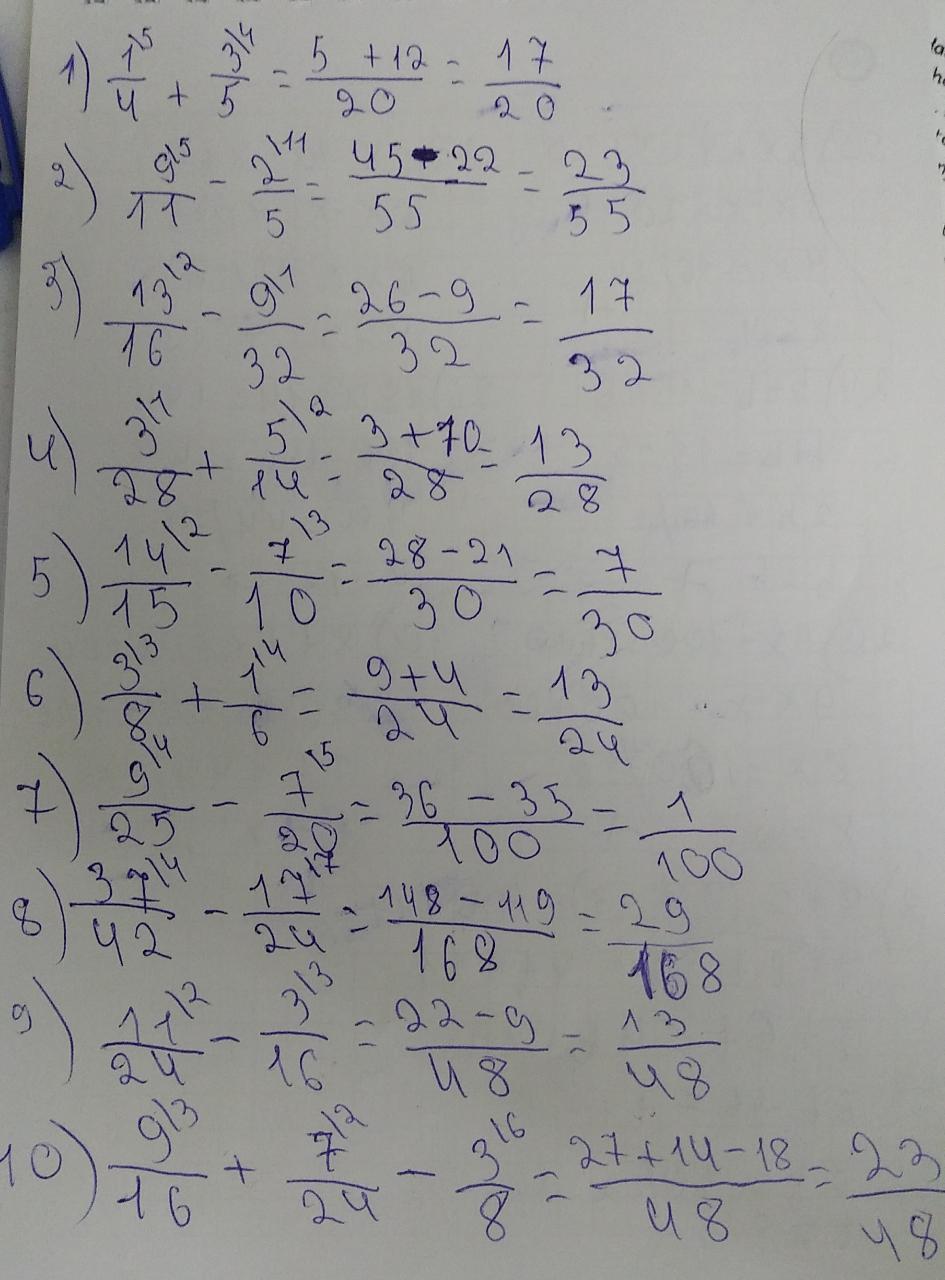 1) 1\5/4 + 3\4/5 = 5+12/20 = 17/20
2) 9\5/11 - 2\11/5 = 45-22/55 = 23/55
3) 13\2/16 - 9\1/32 = 26-9/32 = 17/32
4) 3\1/28 + 5\2/14 = 3+10/28 = 13/28
5) 14\2/15 - 7\3/10 = 28-21/30 = 7/30
6) 3\3/8 + 1\4/6 = 9+4/24 = 13/24
7) 9\4/25 - 7\5/20 = 36-35/100 = 1/100
8) 37\4/42 - 17\7/24 = 148-119/168 = 29/168
9) 11\2/24 - 3\3/16 = 22-9/48 = 13/48
10) 9\3/16 + 7\2/24 - 3\6/8 = 27+14-18/48 = 23/48